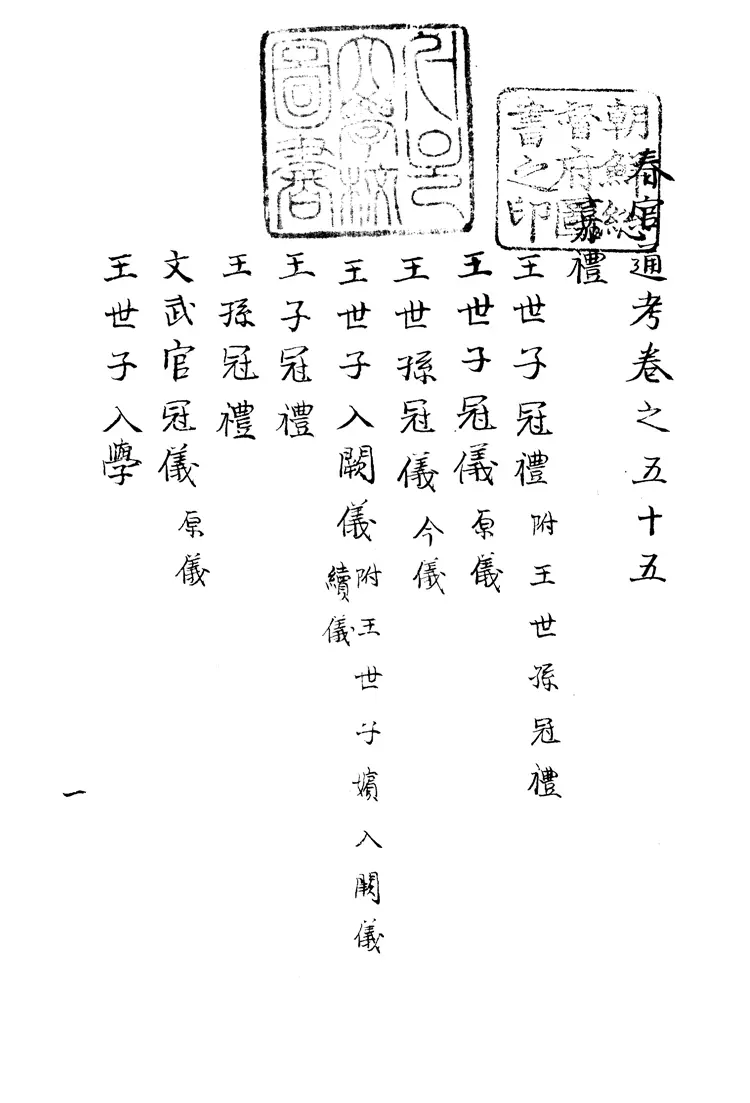 春官通考卷之五十五
嘉禮
王世子冠禮 附王世孫冠禮
王世子冠儀 原儀
王世孫冠儀 今儀
王世子入闕儀 附王世子嬪入闕儀 續儀
王子冠禮
王孫冠禮
文武官冠儀 原儀
王世子入學
一
朝鮮總
督府圖
書之印
大學校
圖書